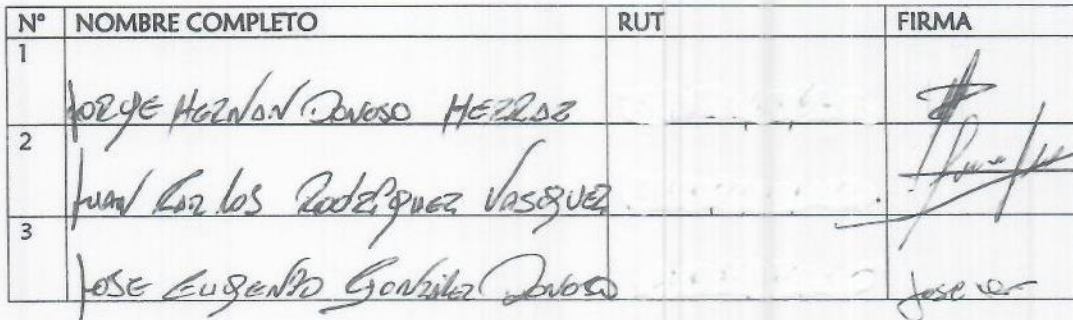 N° NOMBRE COMPLETO RUT FIRMA
1
JORGE HERNAN DONOSO HERRAZ
2
JUAN CARLOS RODRIGUEZ VASQUEZ
3
JOSE EUGENIO GONZALEZ DONOSO Jose